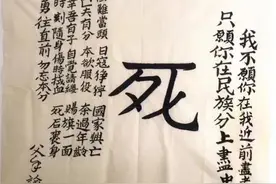 我不願你在我近前盡
只願你在民族分上盡忠
死
難當頭 日寇猙獰 國家興亡
夫有分 本欲服役 奈過年齡
吾有子 自覺請纓 賜旗一面
時刻隨身 傷時拭血 死后裹身
勇往直前 勿忘本分
父手